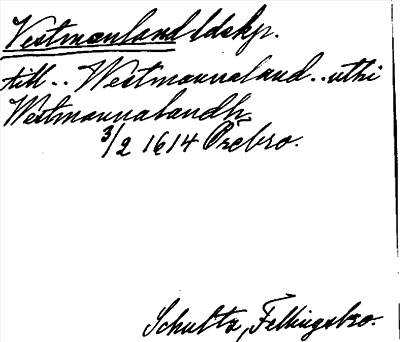 Vestmanland ldskp.
till.. Westmannaland..uthi
Westmannalandh
3/2 1614 Örebro.
Schultz, Fellingsbro.